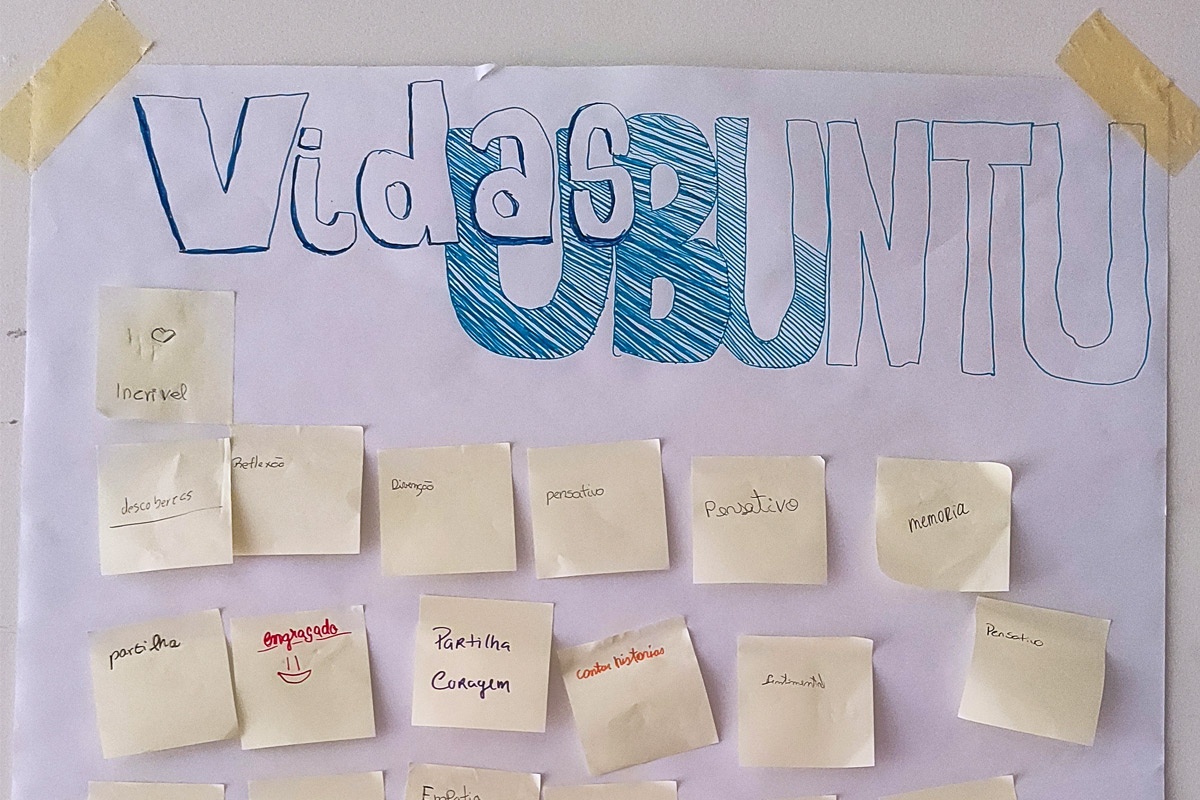 Vidas UBUNTU
Incrivel
descobertas
Reflexão
Diversão
pensativo
Pensativo
memoria
partilha
engraçado
Partilha
Coragem
contar historias
Pensativo
Empatia